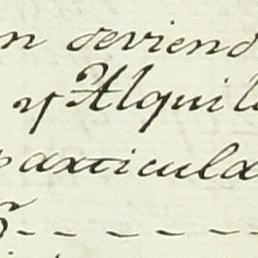 n deviend
y Alquil
particula